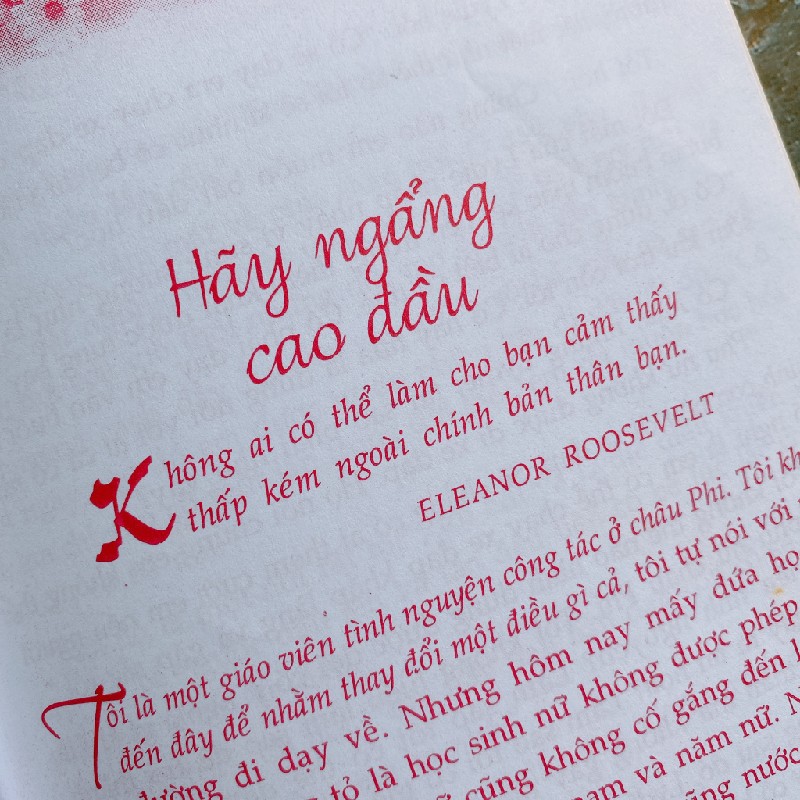 Hãy ngẩng
cao đầu
Không ai có thể làm cho bạn cảm thấy
thấp kém ngoài chính bản thân bạn.
ELEANOR ROOSEVELT
Tôi là một giáo viên tình nguyện công tác ở châu Phi. Tôi
đến đây để nhằm thay đổi một điều gì cả, tôi tự nói với
đi dạy về. Nhưng hôm nay mấy đứa
tỏ là học sinh nữ không được phép
cũng không cố gắng đến
và năm nữ.
nước